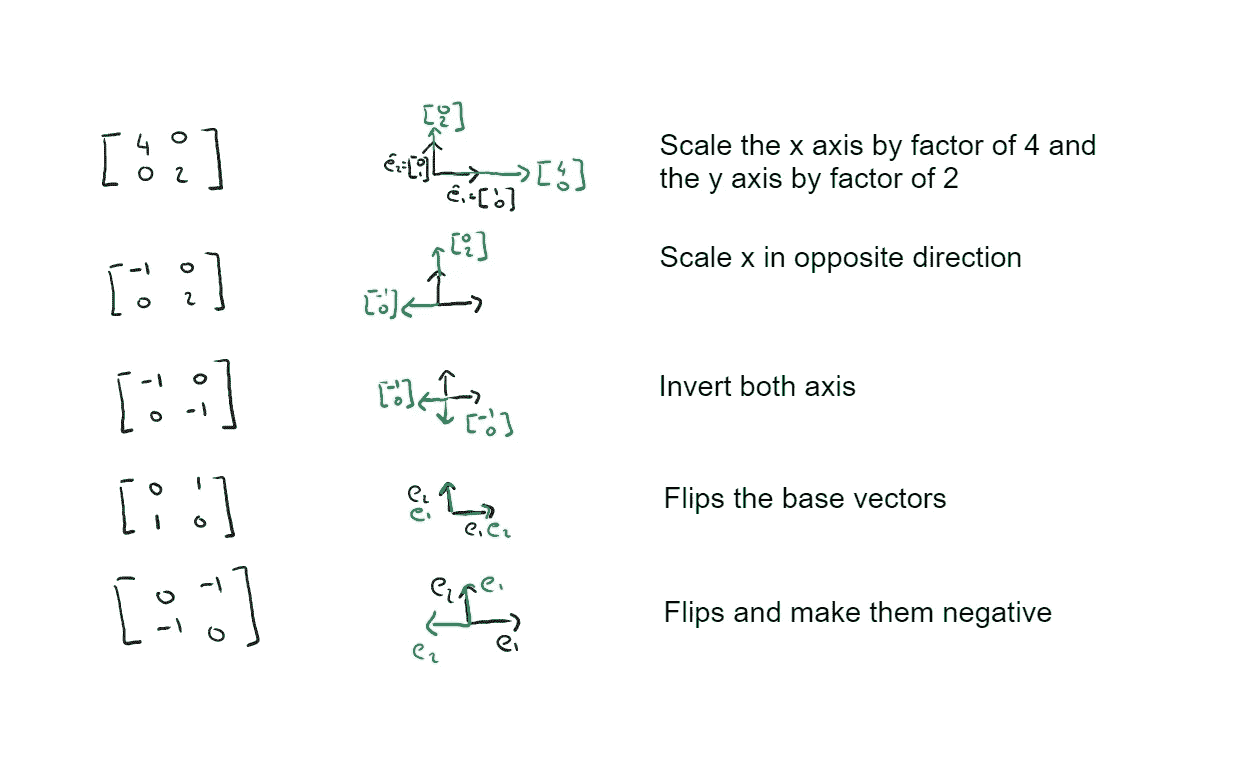 [0 2]
[4 0
0 2]
ê₂=[0 1]
[4 0]
ê₁=[1 0]
Scale the x axis by factor of 4 and
the y axis by factor of 2
[-1 0
0 2]
[0 2]
[-1 0]
Scale x in opposite direction
[-1 0
0 -1]
[-1 0]
[-1 0]
Invert both axis
[0 1
1 0]
e₂
e₁
e₁ e₂
Flips the base vectors
[0 -1
-1 0]
e₂ e₁
e₂
e₁
Flips and make them negative